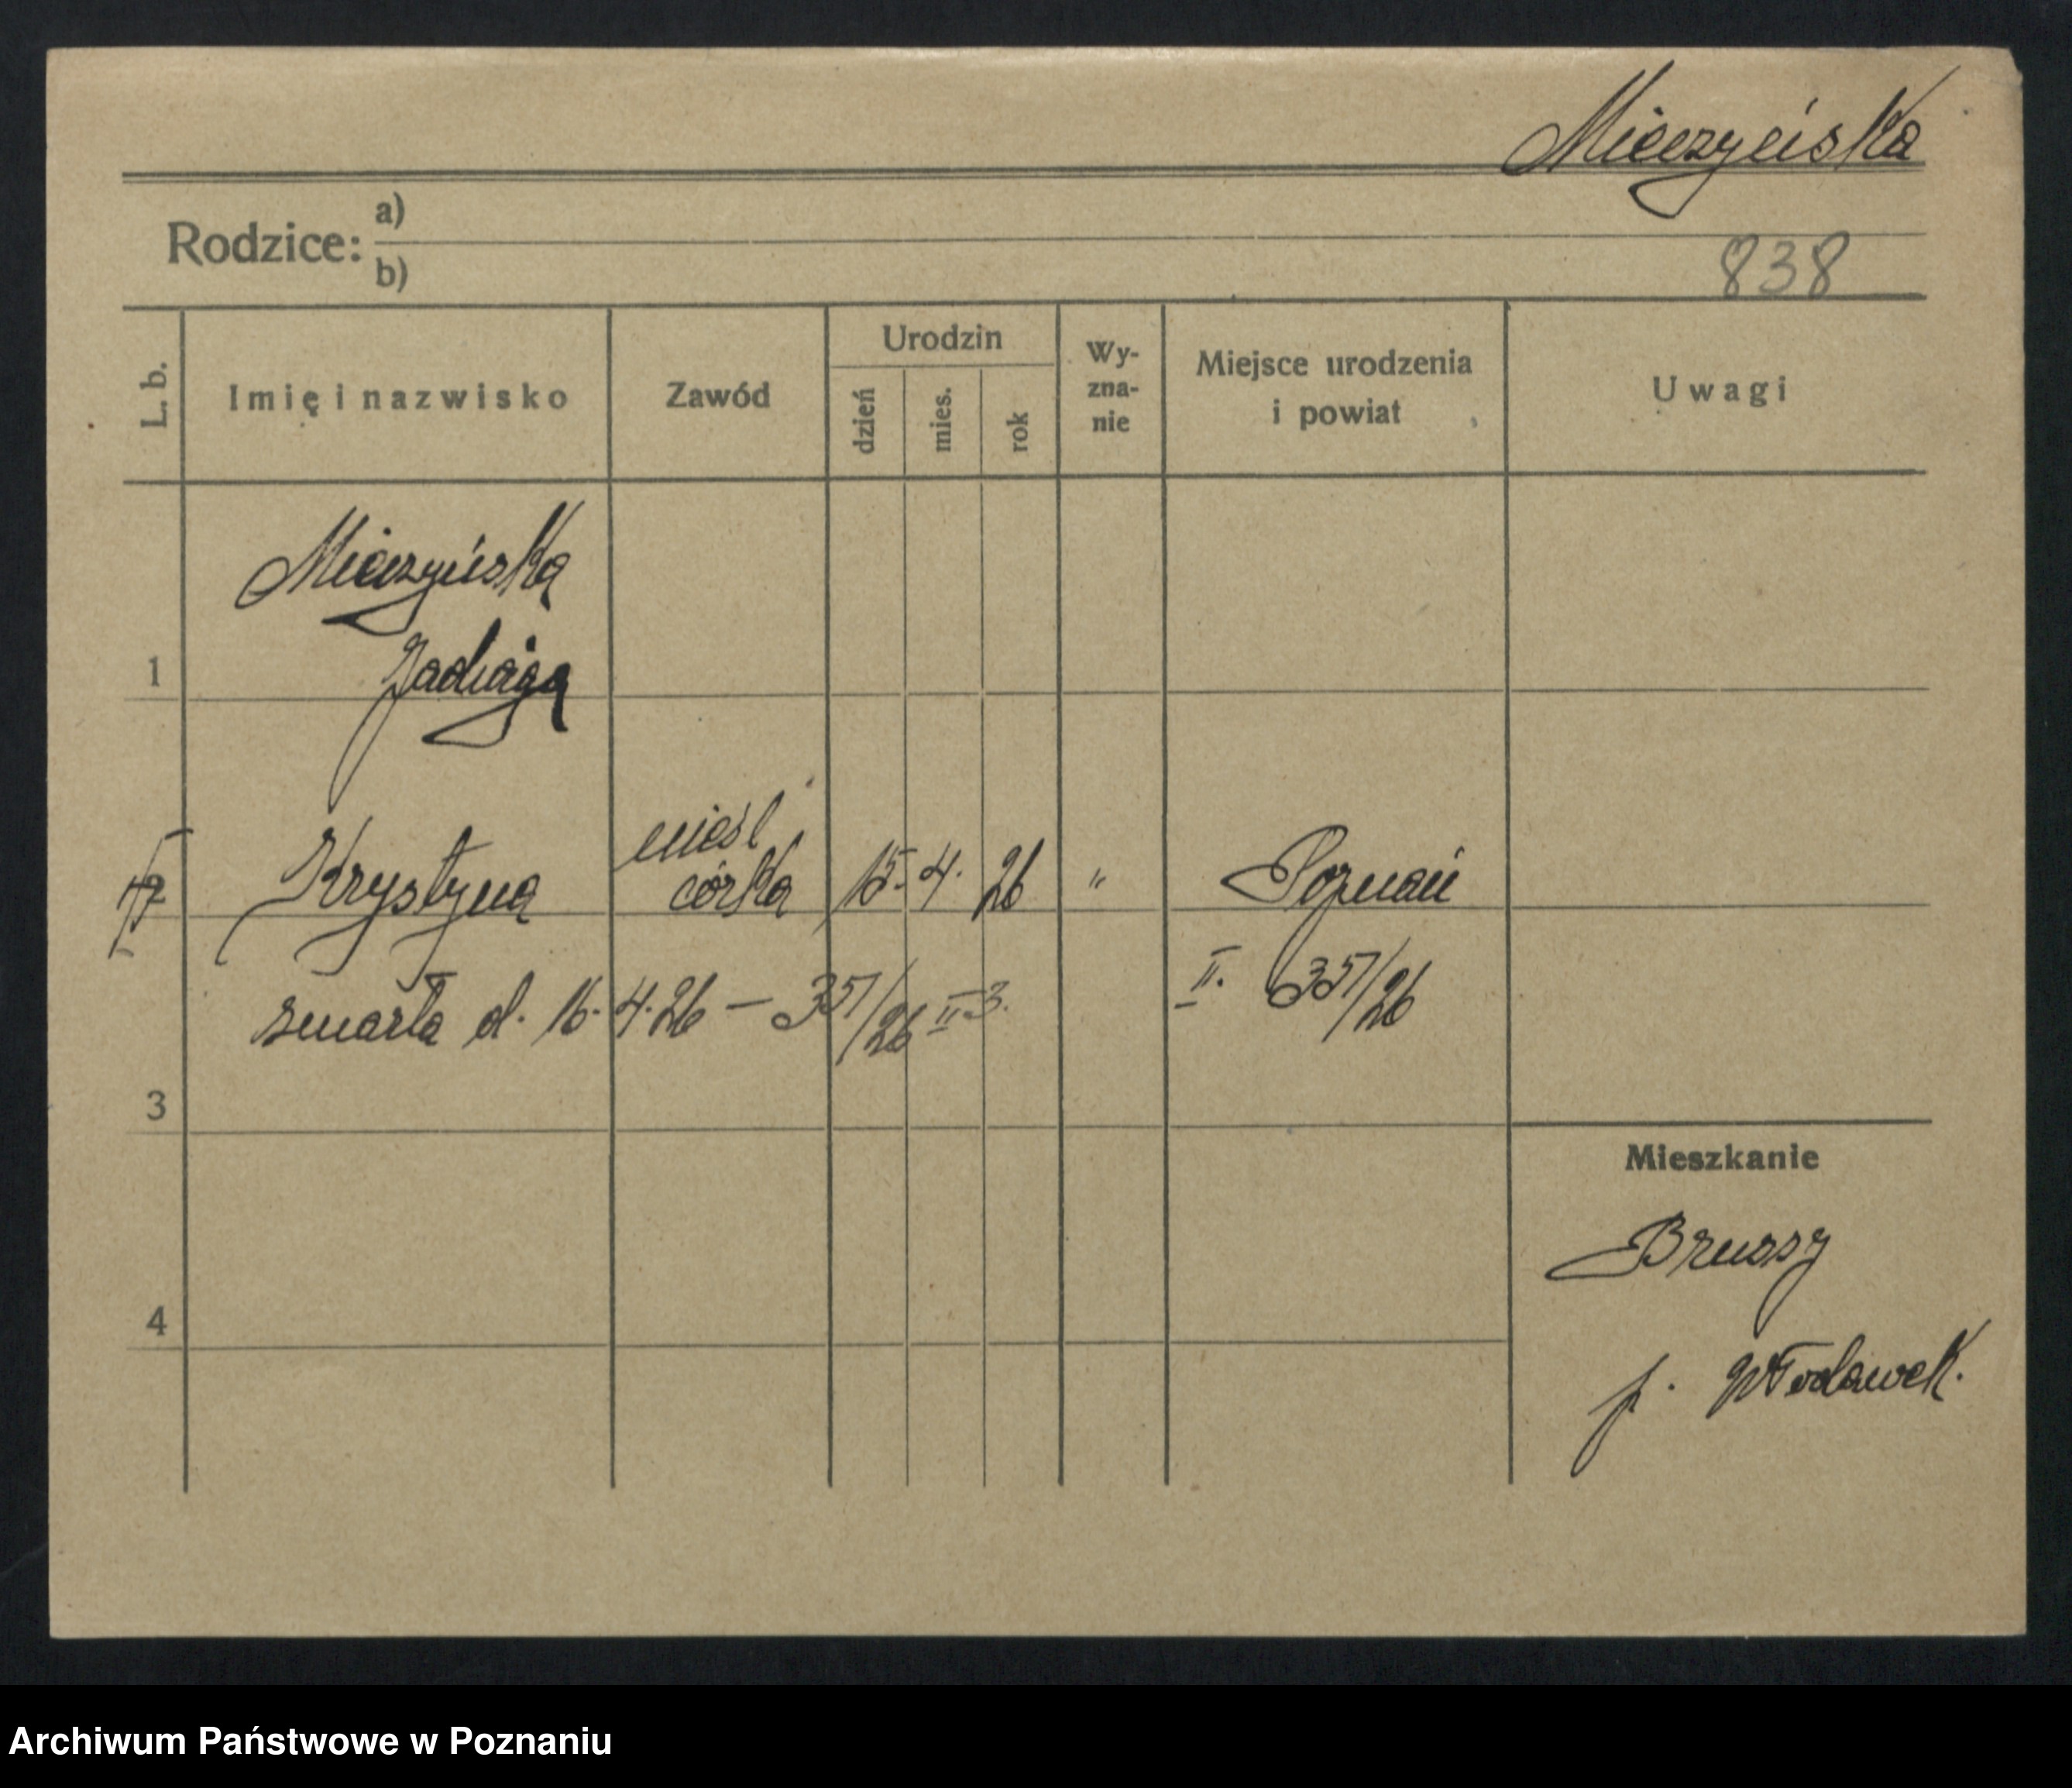 Mieczyńska
Rodzice: a)
b)
838
L. b.
Imię i nazwisko
Zawód
Urodzin
dzień
mies.
rok
Wy-
zna-
nie
Miejsce urodzenia
i powiat
Uwagi
Mieczyńska
1 Jadwiga
nieśl
2 Krystyna córka 15. 4. 26 " Poznań
zmarła d. 16. 4. 26 – 357/26 II 3. II. 637/26
3
Mieszkanie
Brussy
4
p. Włocławek.
Archiwum Państwowe w Poznaniu